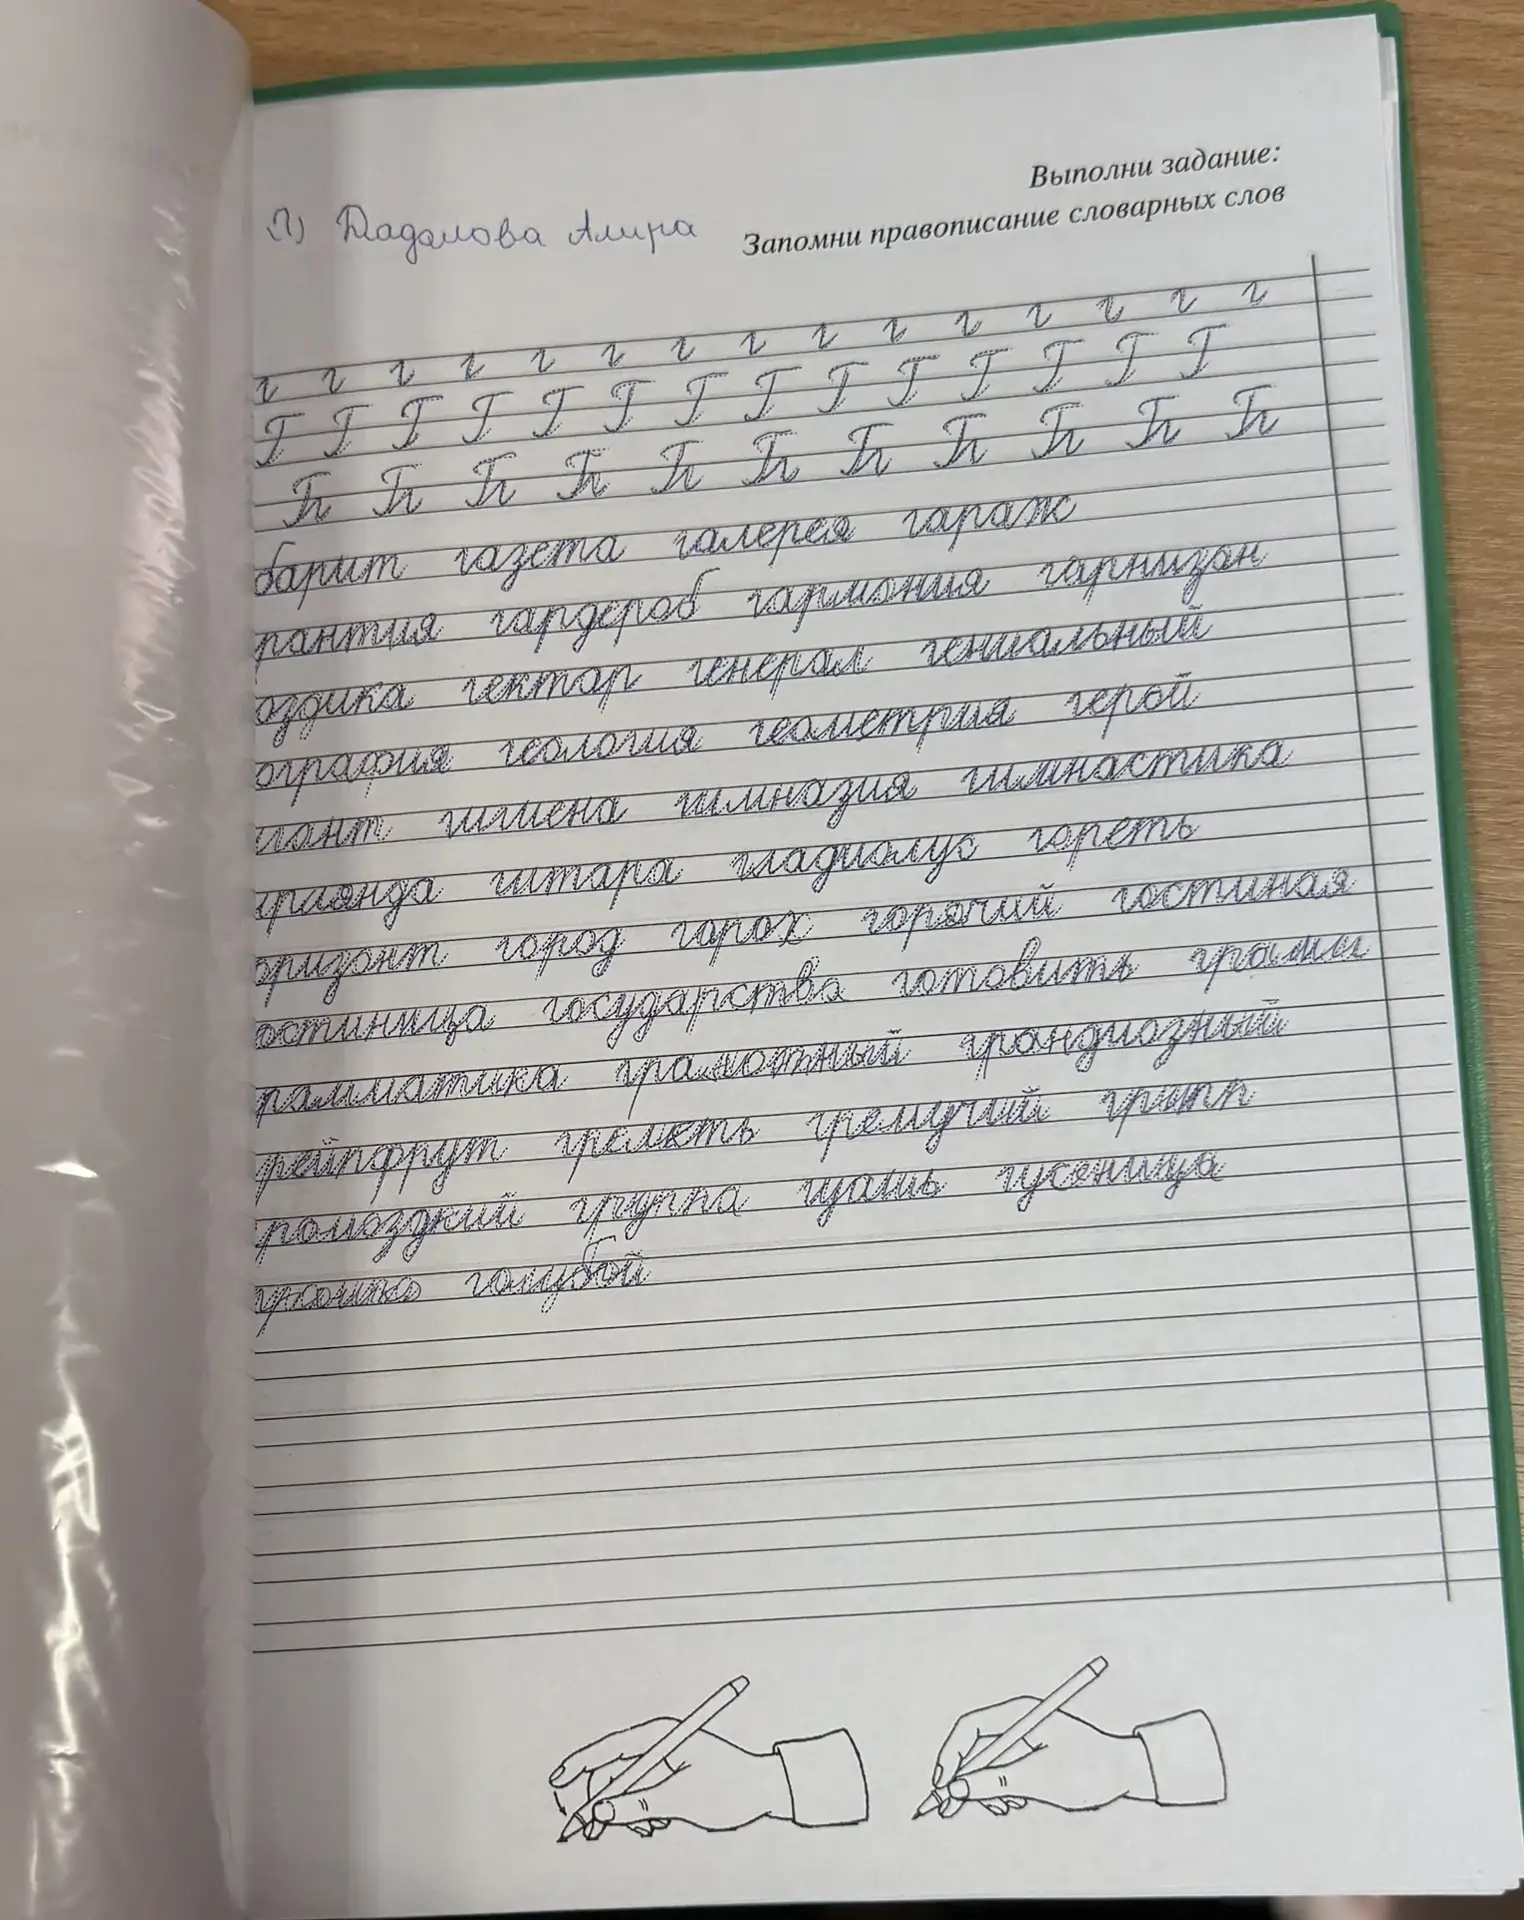 Выполни задание:
Запомни правописание словарных слов
Алира
г г г г г г г г г г г г г г г
Г Г Г Г Г Г Г Г Г Г Г Г Г Г
Гг Гг Гг Гг Гг Гг Гг Гг Гг Гг Гг
барит газета галерея гараж
рантия гардероб гармония гарнизон
оздика гектар генерал гениальный
ография геология геометрия герой
игант гигиена гимназия гимнастика
ирлянда гитара гладиолус гореть
оризонт город горох горячий гостиная
остиница государство готовить грамм
рамматика грамотный грандиозный
рейпфрут греметь гремучий грипп
ромоздкий группа гуашь гусеница
голубой